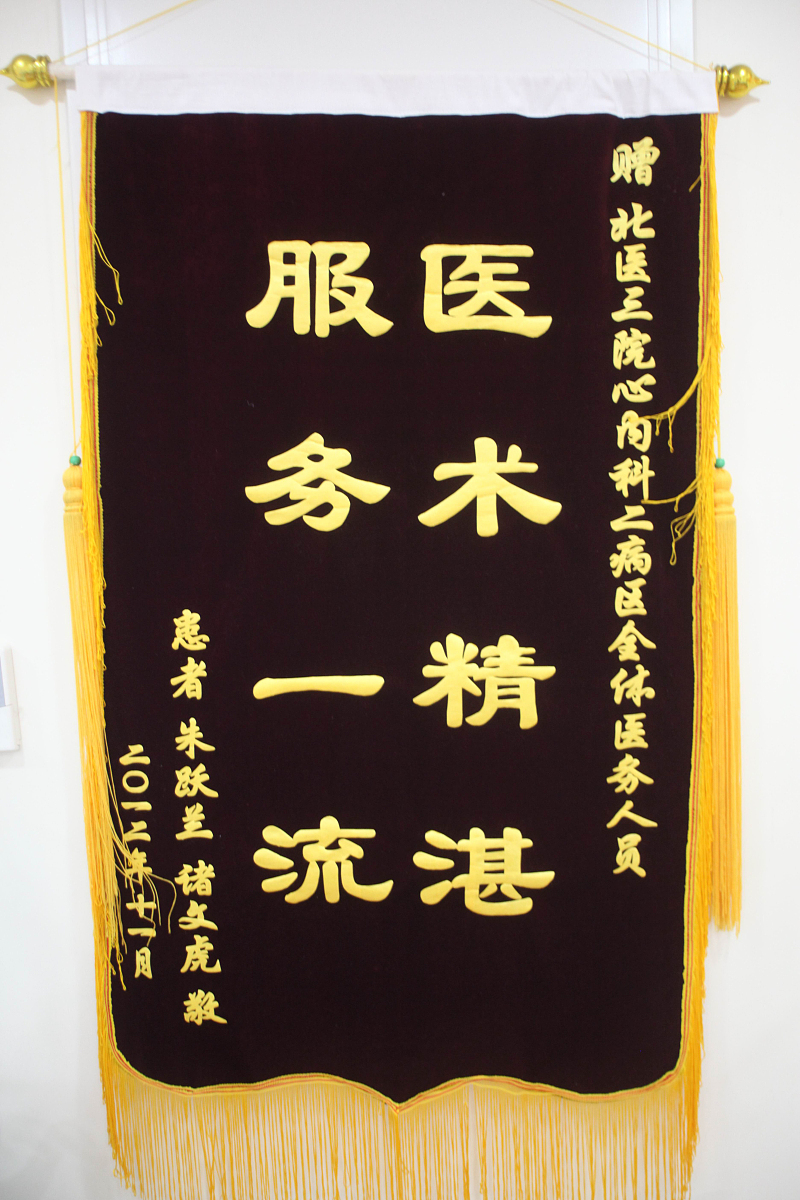 赠 北医三院心内科二病区全体医务人员
医术精湛
服务一流
患者 朱跃兰 诸文虎 敬
二〇一二年十一月